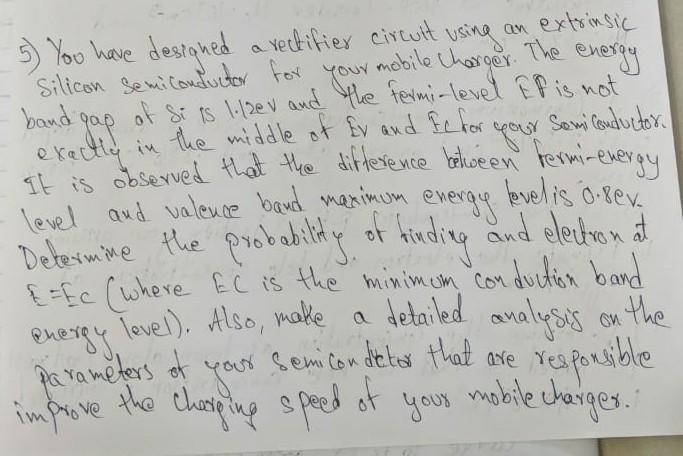 5) You have designed a rectifier circuit using an extrinsic
Silicon Semiconductor for your mobile Charger. The energy
band gap of Si is 1.12ev and the fermi-level EF is not
exactly in the middle of Ev and Ec for your Semiconductor.
It is observed that the difference between fermi-energy
level and valence band maximum energy level is 0.8ev.
Determine the probability of finding and electron at
E=Ec (where EC is the minimum conduction band
energy level). Also, make a detailed analysis on the
parameters of your Semiconductor that are responsible
improve the charging speed of your mobile charger.